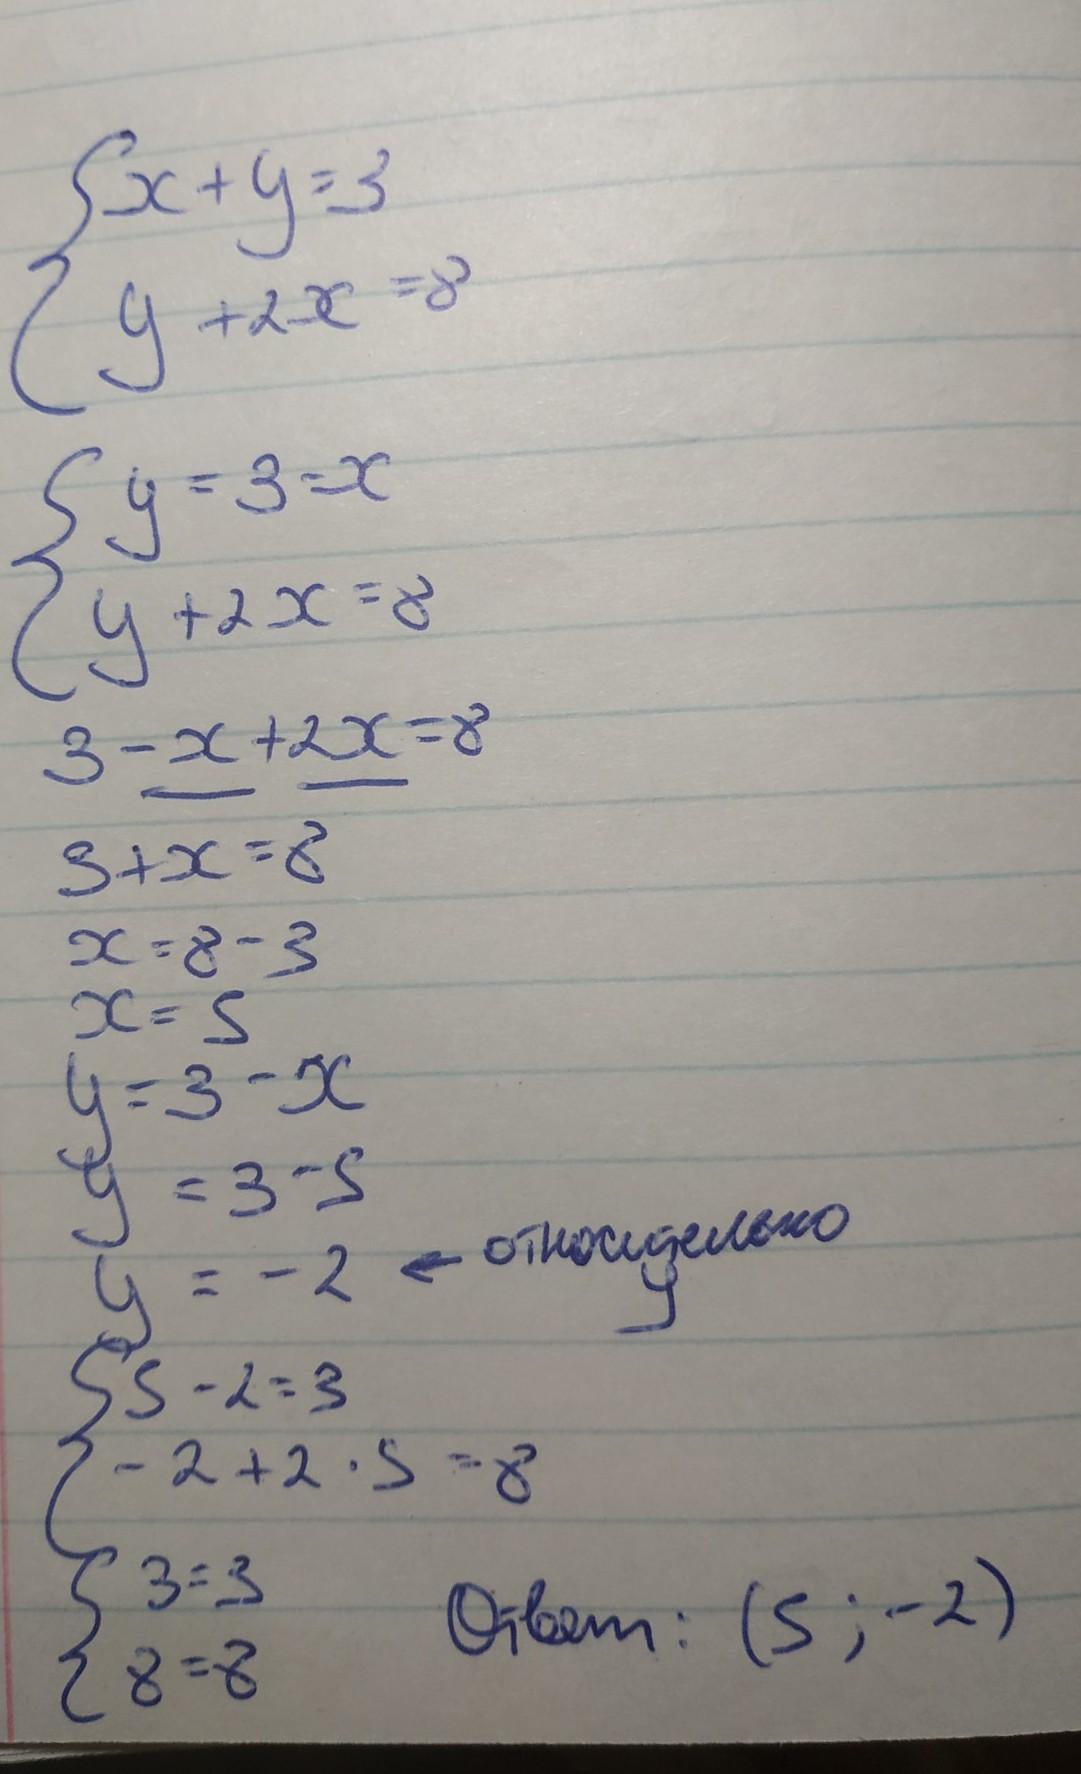 {x+y=3
y+2x=8
{y=3-x
y+2x=8
3-x+2x=8
3+x=8
x=8-3
x=5
y=3-x
y=3-5
y=-2 ← относительно
y
{5-2=3
-2+2·5=8
{3=3
8=8
Ответ: (5;-2)